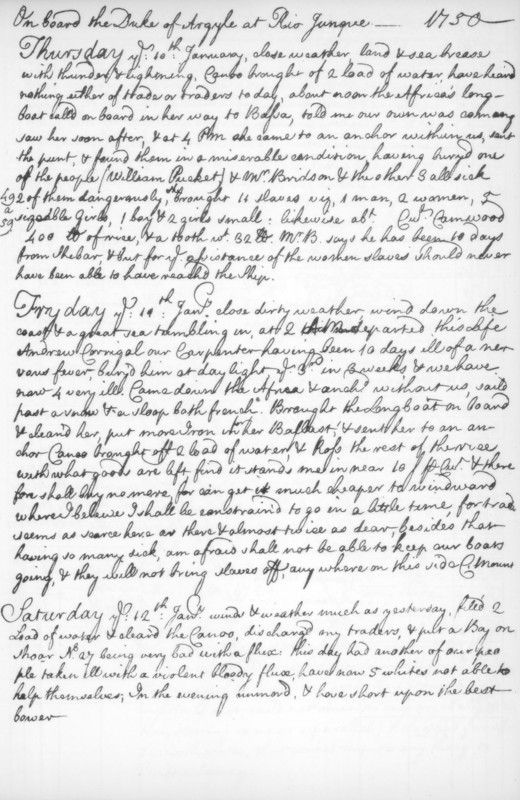 On board the Duke of Argyle at Rio Junque — 1750 —
Thursday ye. 10th January, close weather land & sea breese
with thunder & lightning, Canoo brought of 2 load of water, have heard
nothing either of trade or traders to day, about noon the Africa's long-
boat calld on board in her way to Bassa, told me our own was coming
saw her soon after, & at 4 PM she came to an anchor within us, sent
the punt, & found them in a miserable condition, having buryd one
of the people (William Pucket) & Mr. Bridson & the other 3 all sick
49 2 of them dangerously, they brought 11 slaves viz, 1 man, 2 women, 5
a sizeable Girls, 1 boy & 2 girls small: likewise abt. Cwt. Camwood
59 400 lb of rice, & a tooth wt. 32 lb. Mr. B. says he has been 10 days
from Shebar, & but for ye. assistance of the women slaves should never
have been able to have reachd the Ship.
Fryday ye. 11th Jany. close dirty weather, wind down the
coast & a great sea tumbling in, at 2 departed this Life
Andrew Corrigal our Carpenter having been 10 days ill of a ner-
vous fever, buryd him at day light ye. 3rd in 3 weeks, & we have
now 4 very ill. Came down the Africa & anchd without us, saild
past a snow & a sloop both french. Brought the Longboat on board
& cleand her, put more Iron in her Ballast, & sent her to an an-
chor Canoo brought off 2 load of water, & Ross the rest of the rice
with what goods are left find it stands me in near 10/ pr Cwt. & there
fore shall buy no more, for can get it much cheaper to windward
where I beleive I shall be constraind to go in a little time, for trade
seems as scarce here as there & almost twice as dear, besides that
having so many sick, am afraid shall not be able to keep our boats
going, & they will not bring slaves off, any where on this side C. Mount
Saturday ye. 12th Jany. winds & weather much as yesterday, filld 2
Load of water & cleard the Canoo, dischargd my traders, & put a Boy on
Shoar No. 27 being very bad with a flux: this day had another of our peo
ple taken ill with a violent bloody flux, have now 5 whites not able to
help themselves; In the evening unmoord, & hove short upon the best
bower